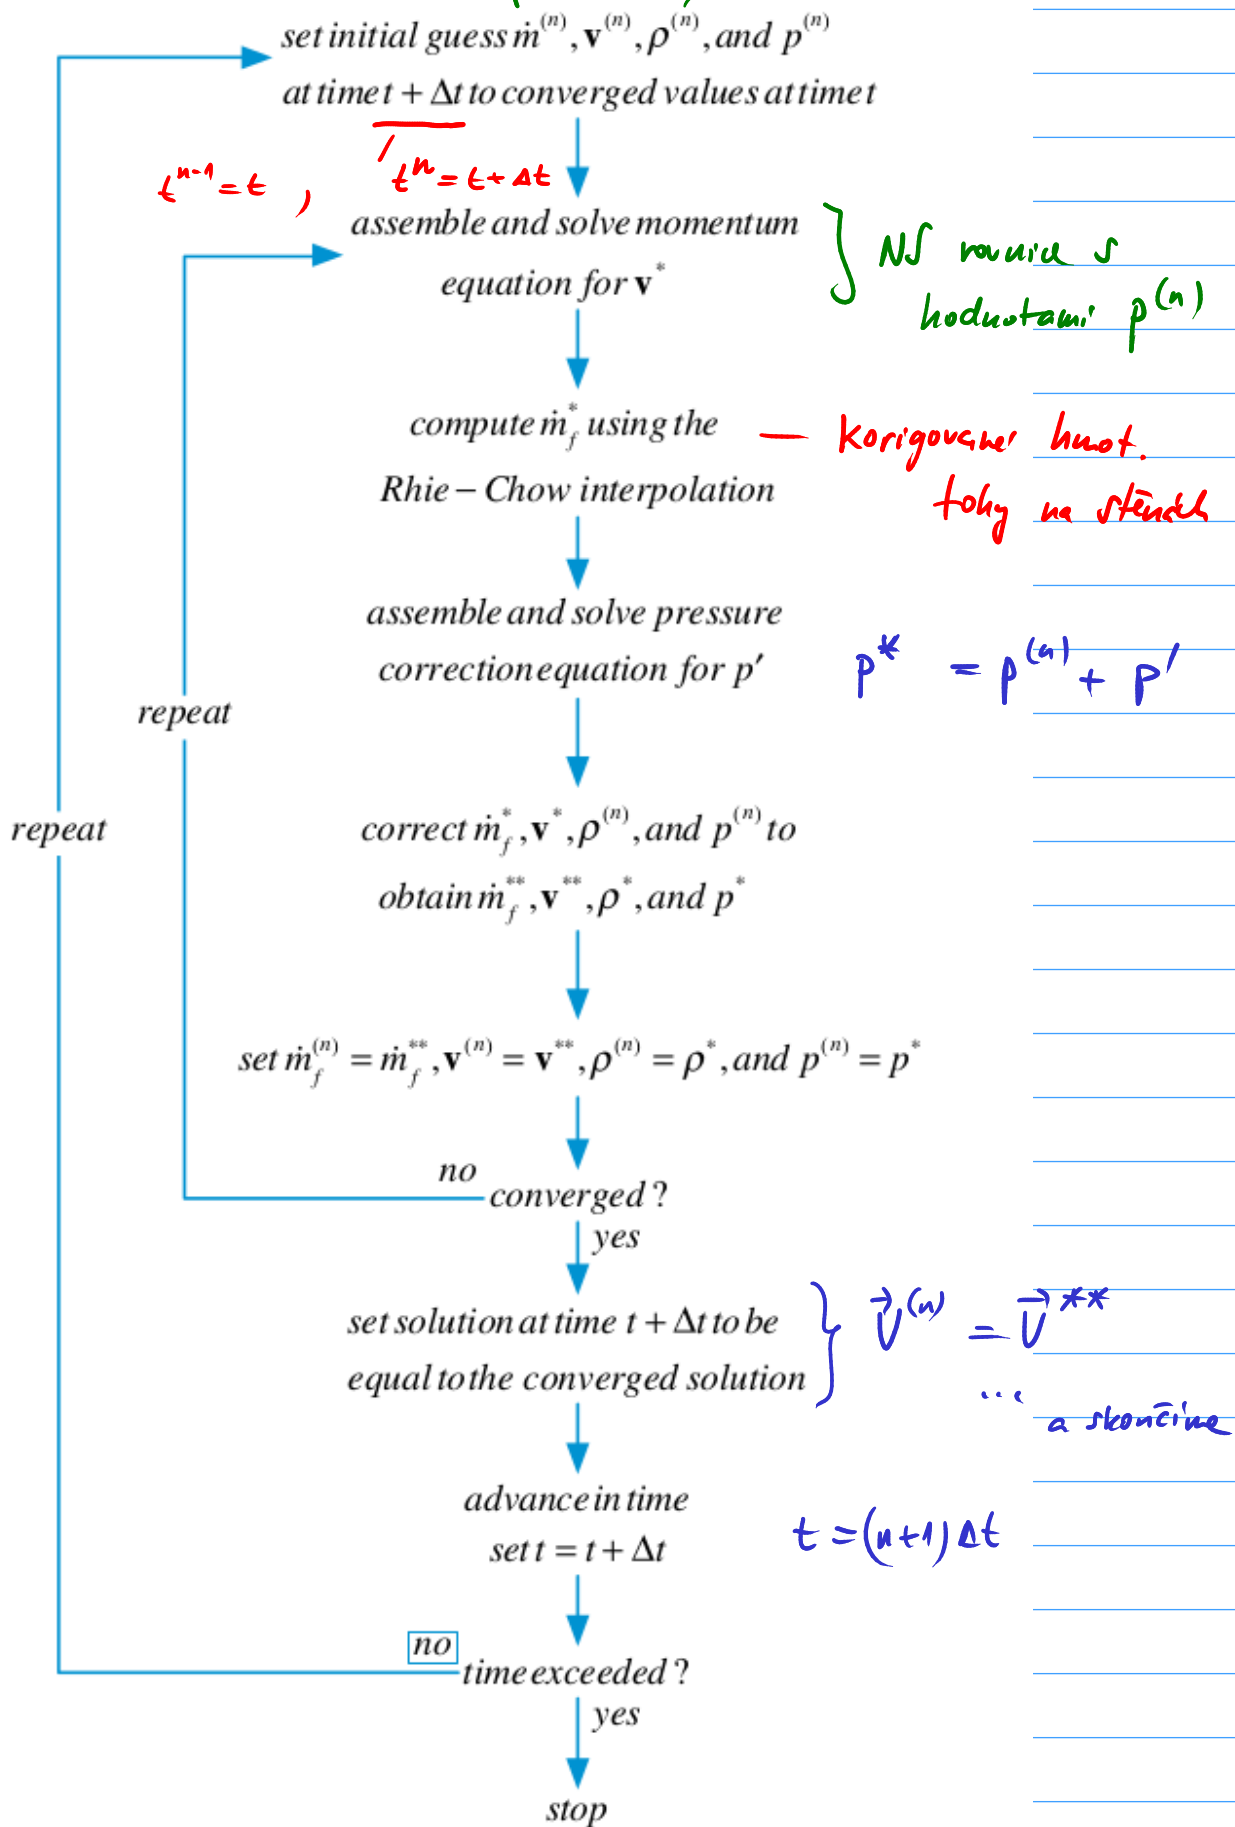 set initial guess ṁ⁽ⁿ⁾, v⁽ⁿ⁾, ρ⁽ⁿ⁾, and p⁽ⁿ⁾
at time t + Δt to converged values at time t
tⁿ⁻¹ = t , tⁿ = t + Δt
assemble and solve momentum
equation for v*
NS rovnice s
hodnotami p⁽ⁿ⁾
compute ṁ_f* using the
Rhie – Chow interpolation
— Korigované hmot.
toky na stěnách
assemble and solve pressure
correction equation for p′
p* = p⁽ⁿ⁾ + p′
repeat
repeat
correct ṁ_f*, v*, ρ⁽ⁿ⁾, and p⁽ⁿ⁾ to
obtain ṁ_f**, v**, ρ*, and p*
set ṁ_f⁽ⁿ⁾ = ṁ_f**, v⁽ⁿ⁾ = v**, ρ⁽ⁿ⁾ = ρ*, and p⁽ⁿ⁾ = p*
no
converged ?
yes
set solution at time t + Δt to be
equal to the converged solution
v⃗⁽ⁿ⁾ = v⃗**
... a skončíme
advance in time
set t = t + Δt
t = (n+1) Δt
no
time exceeded ?
yes
stop